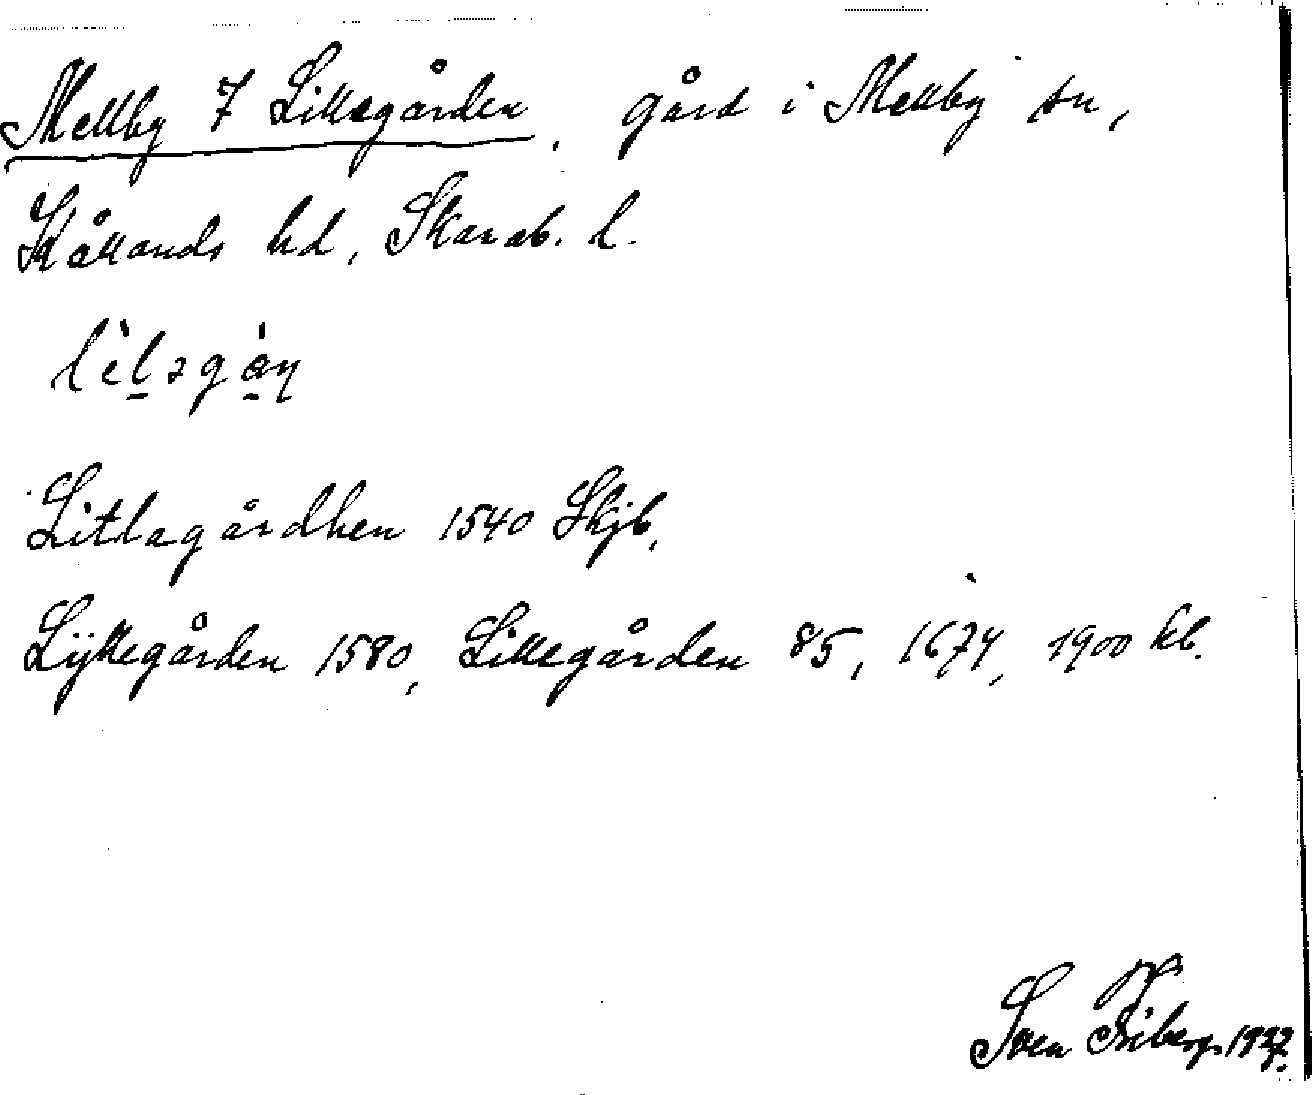 Mellby 7 Lillegården, gård i Mellby sn,
Kållands hd, Skarab. l.
lìləgán
Litlagårdhen 1540 Skjb,
Lÿllegården 1580, Lillegården 85, 1674, 1900 kb.
Sven Friberg 1937.